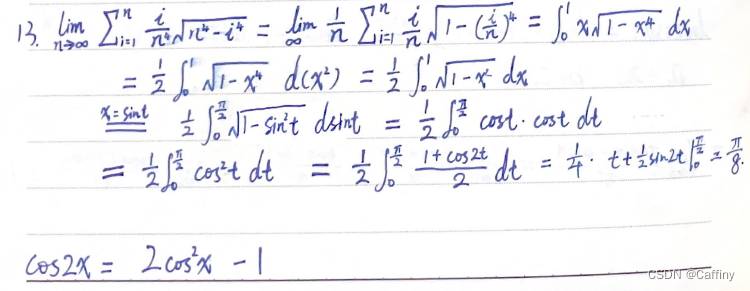 13. lim n→∞ ∑ᵢ₌₁ⁿ i/n⁴ √(n⁴-i⁴) = lim ∞ 1/n ∑ᵢ₌₁ⁿ i/n √(1-(i/n)⁴) = ∫₀¹ x√(1-x⁴) dx
= 1/2 ∫₀¹ √(1-x⁴) d(x²) = 1/2 ∫₀¹ √(1-x²) dx
x=sint 1/2 ∫₀^(π/2) √(1-sin²t) dsint = 1/2 ∫₀^(π/2) cost·cost dt
= 1/2 ∫₀^(π/2) cos²t dt = 1/2 ∫₀^(π/2) (1+cos2t)/2 dt = 1/4 · t+1/2 sin2t |₀^(π/2) = π/8.
cos2x = 2cos²x - 1
CSDN @Caffiny